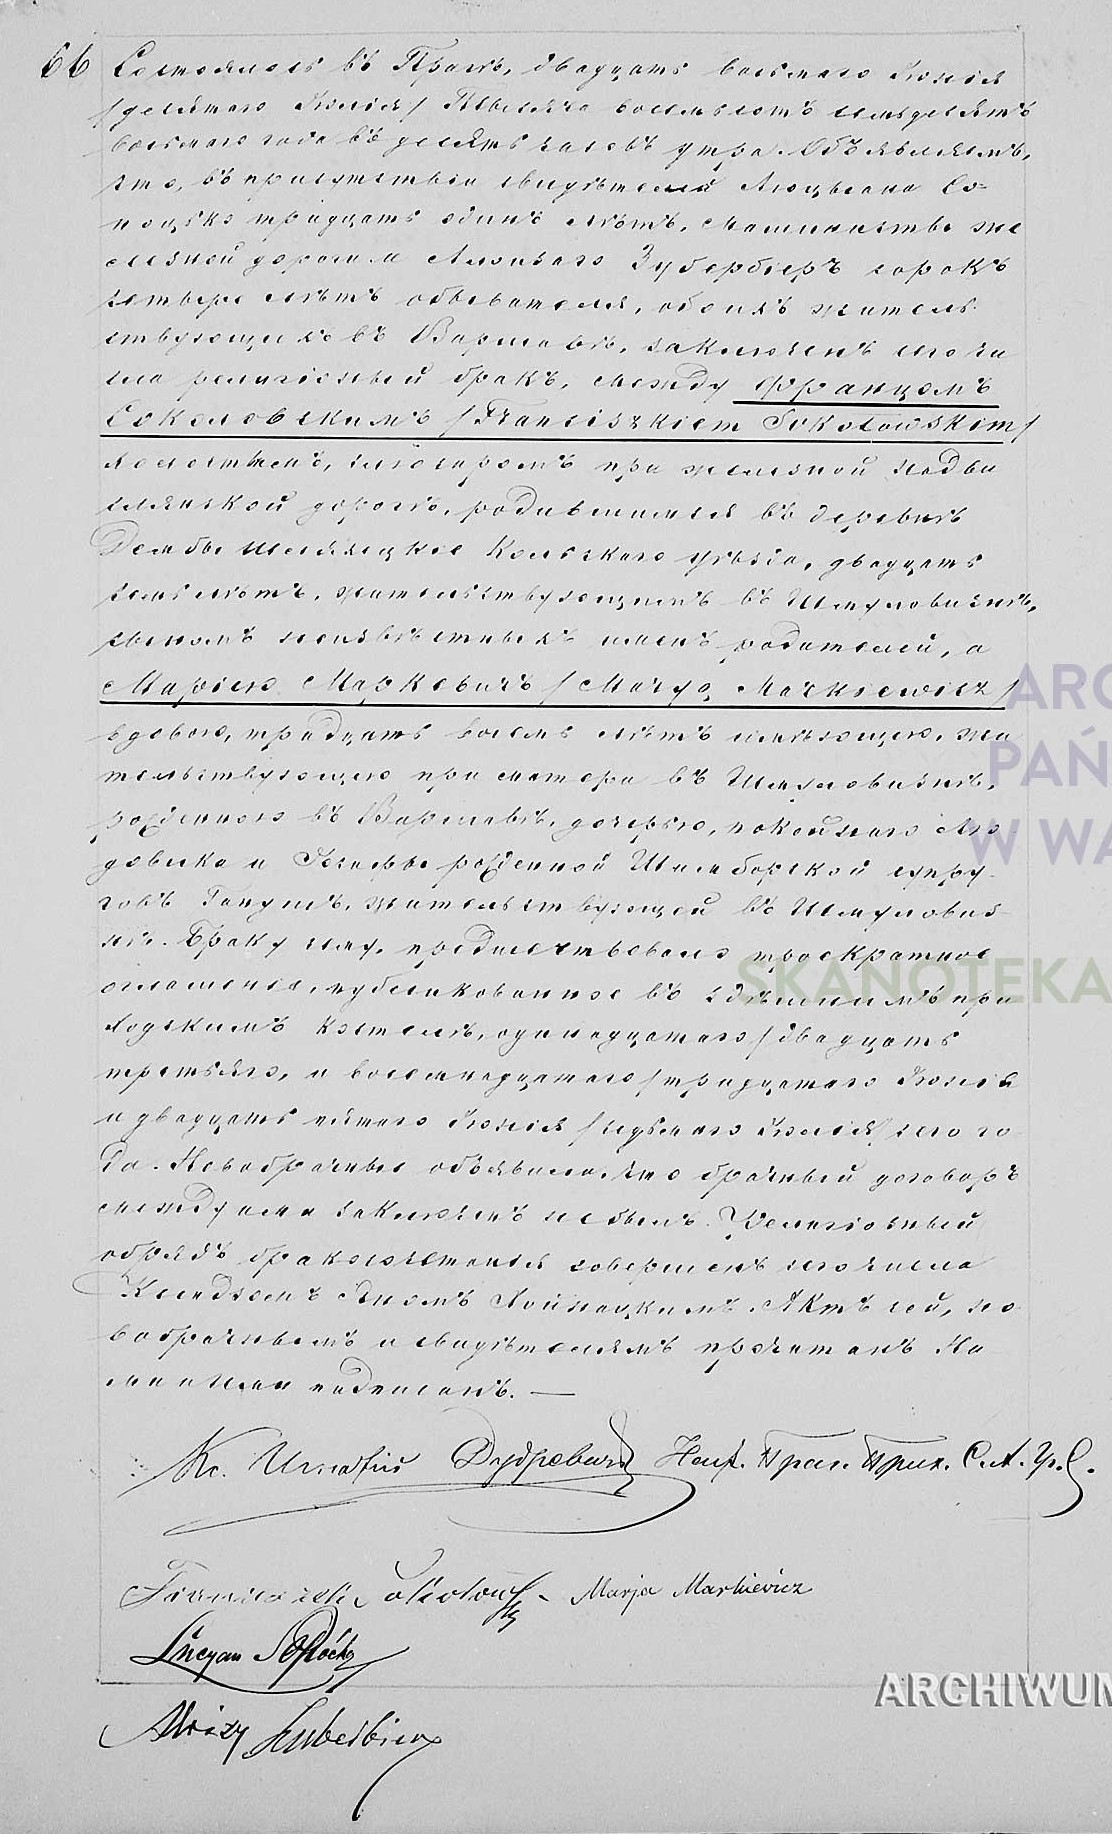 66 Состоялось въ Прагѣ, двадцать восьмаго Іюня
/десятаго Іюля/ тысяча восемьсотъ семьдесятъ
восьмаго года въ десять часовъ утра. Объявляемъ,
что, въ присутствіи свидѣтелей Люцыана Со-
поцько тридцать одинъ лѣтъ, машиниста же
лезной дороги и Алоизаго Зубербіеръ сорокъ
четыре лѣтъ обывателя, обоихъ житель
ствующихъ въ Варшавѣ, заключенъ сего чи
сла религіозный бракъ, между Францомъ
Соколовскимъ /Franciszkiem Sokołowskim/
холостымъ, слюсаромъ при железной Надви
слянской дорогѣ, родившимся въ деревнѣ
Дембы Шляхецкіе Кольскаго уѣзда, двадцать
семь лѣтъ, жительствующимъ въ Шмуловизнѣ,
сыномъ неизвѣстныхъ именъ родителей, а
Маріею Маркевичъ /Maryą Markiewicz/
вдовою, тридцать восемь лѣтъ имѣющею, жи
тельствующею при матери въ Шмуловизнѣ,
рожденною въ Варшавѣ, дочерью, покойнаго Лю
довика и Іозефы рожденной Шимборской супру-
говъ Ганушъ, жительствующей въ Шмуловиз-
нѣ. Браку сему, предшествовало троекратное
оглашеніе, публикованное въ здѣшнимъ при
ходскимъ костелѣ, одинадцатаго /двадцать
третьяго, и восемнадцатаго /тридцатаго Іюня
и двадцать пятаго Іюня /седьмаго Іюля/ сего го
да. Новобрачные объявили, что брачный договоръ
между ими заключенъ небылъ. Религіозный
обрядъ бракосочетанія совершенъ сего числа
Ксендзомъ Яномъ Хойнацкимъ. Актъ сей, но
вобрачнымъ и свидѣтелямъ прочитанъ На
ми и Ими подписанъ. —
Кс. Игнатій Дудревичъ Наст. Праг. Прих. С. А. Гр. С.
Franciszek Sokołowski Marja Markiewicz
Lucyan Sopoćko
Aloizy Zuberbier
ARC
PAŃ
W WA
SKANOTEKA
ARCHIWUM